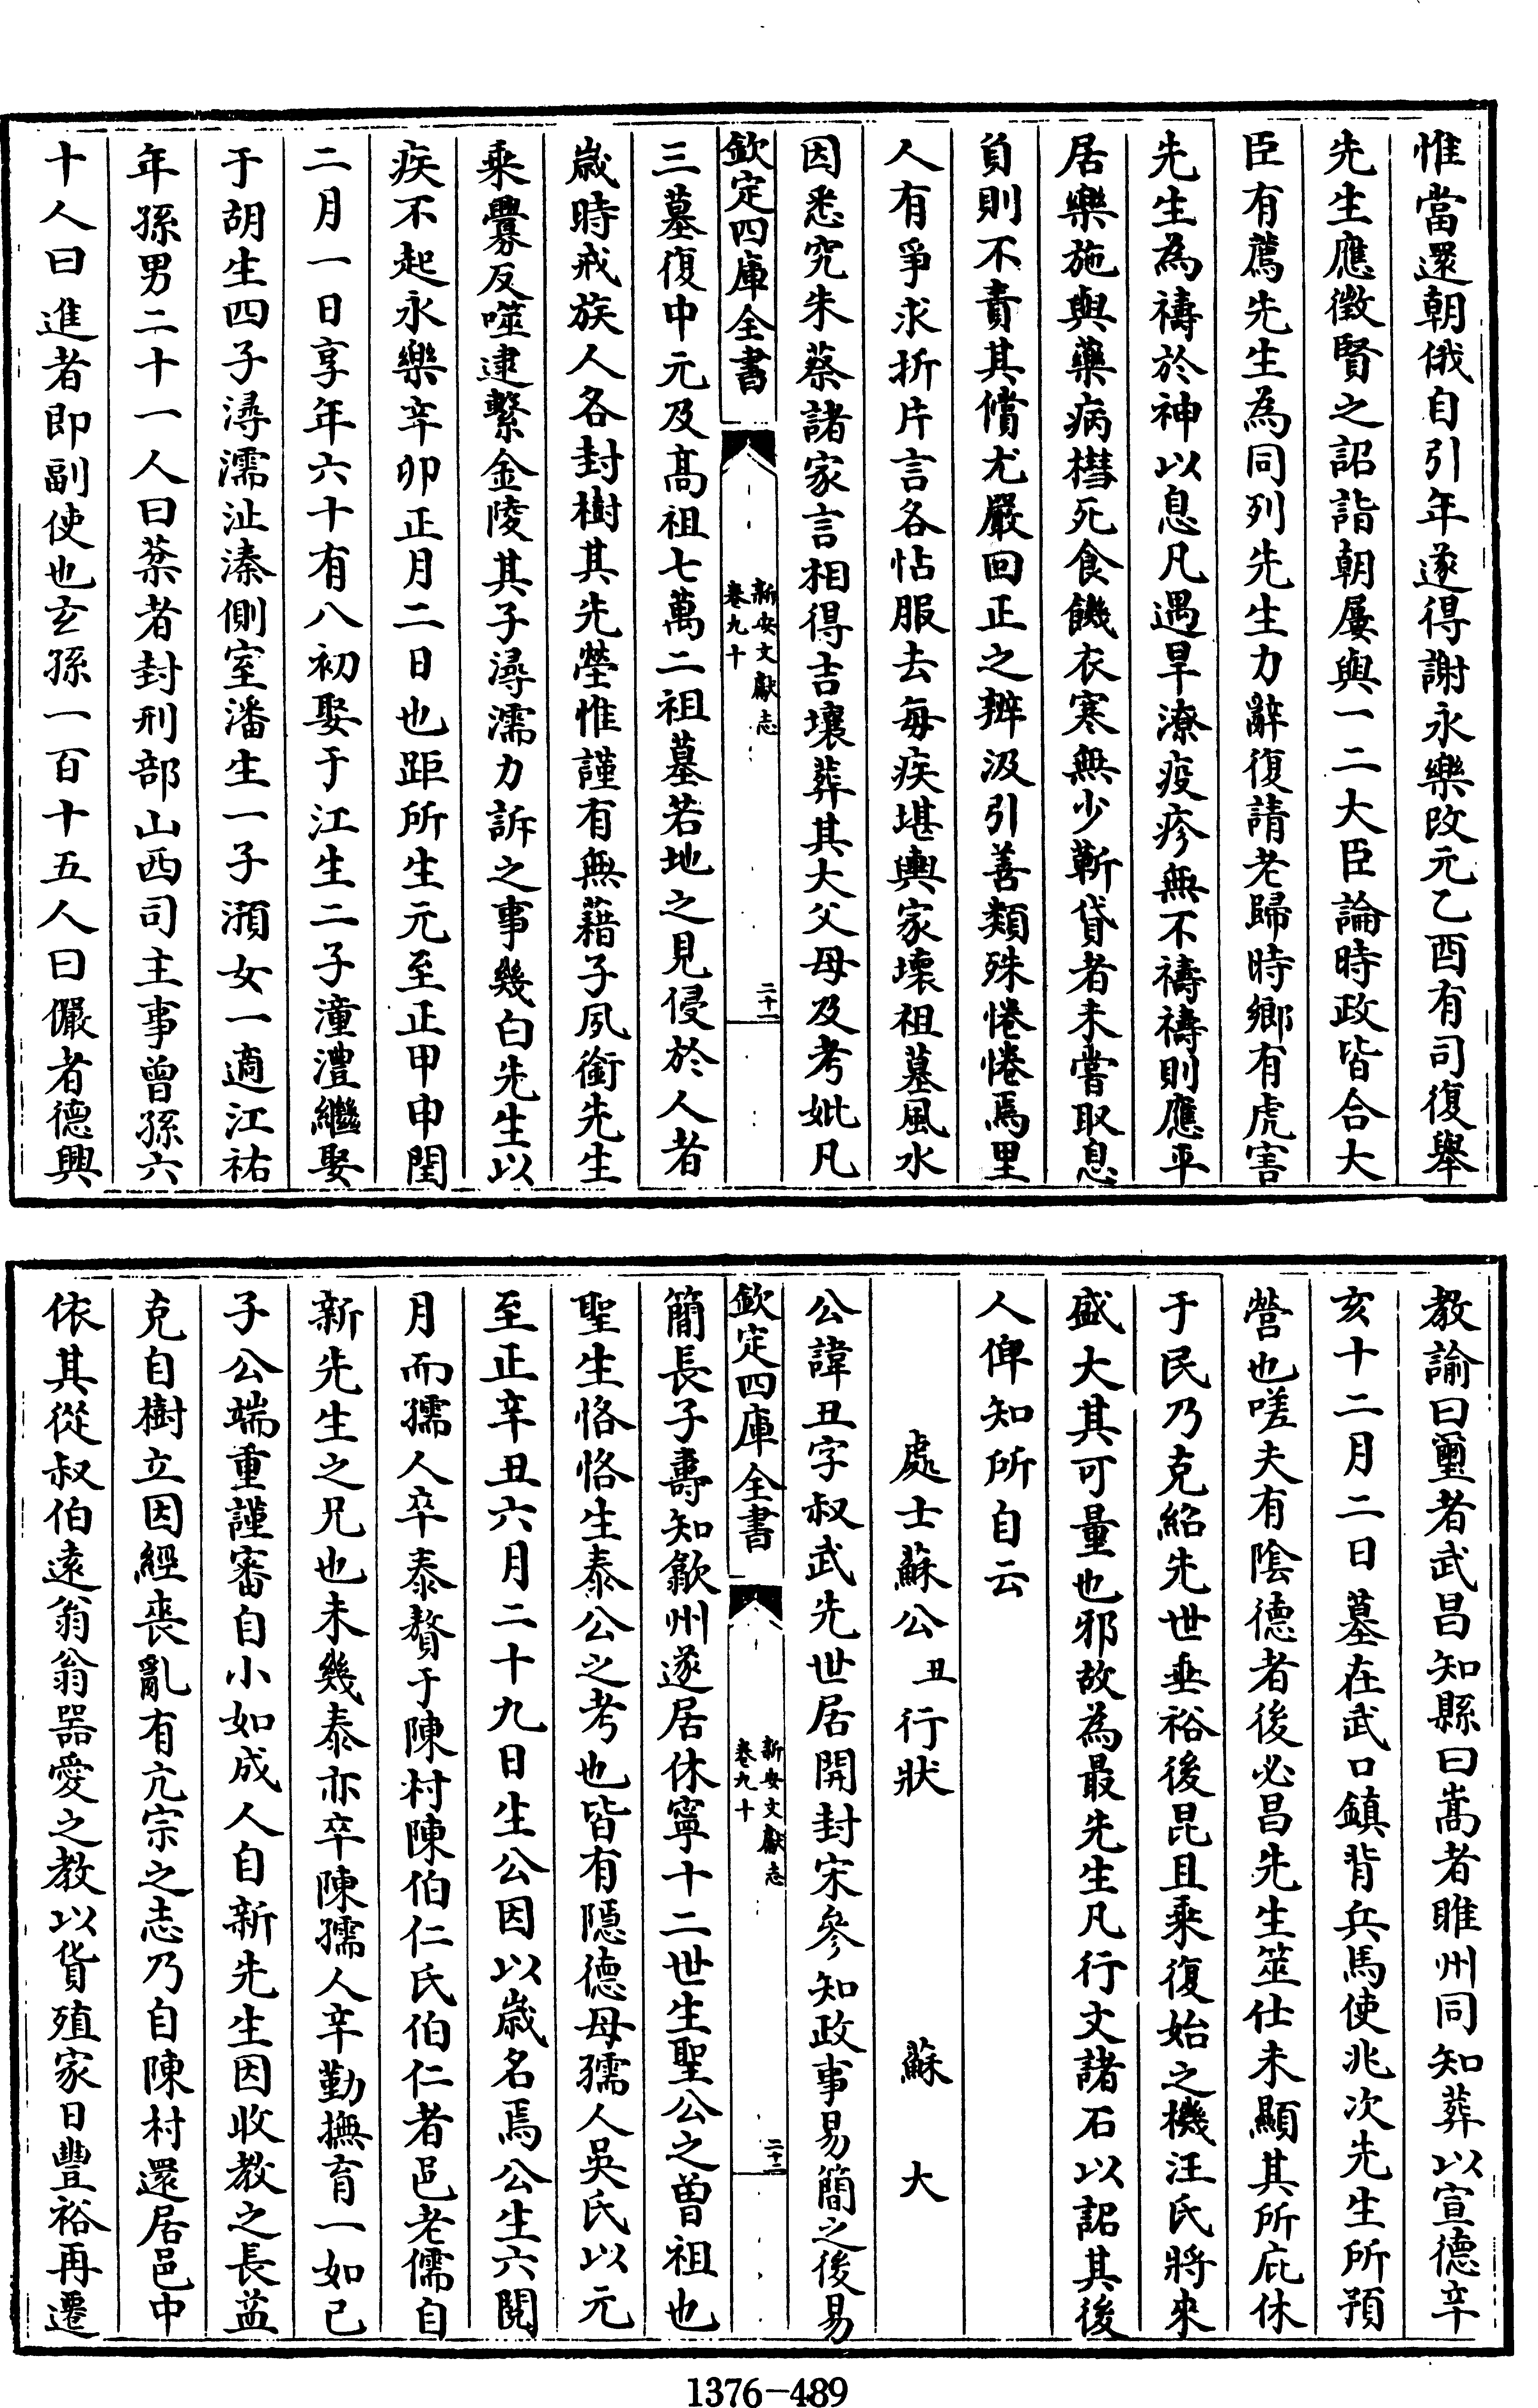 惟當還朝俄自引年遂得謝永樂改元乙酉有司復舉
先生應徵賢之詔詣朝屢與一二大臣論時政皆合大
臣有薦先生為同列先生力辭復請老歸時鄉有虎害
先生為禱於神以息凡遇旱潦疫疹無不禱禱則應平
居樂施與藥病槥死食饑衣寒無少靳貸者未嘗取息
負則不責其償尤嚴回正之辨汲引善類殊惓惓焉里
人有爭求折片言各怗服去每疾堪輿家壊祖墓風水
因悉究朱蔡諸家言相得吉壤葬其大父母及考妣凡
欽定四庫全書
新安文獻志
卷九十
二十一
三墓復中元及髙祖七萬二祖墓若地之見侵於人者
嵗時戒族人各封樹其先塋惟謹有無藉子夙銜先生
乘釁反噬逮繫金陵其子潯濡力訴之事幾白先生以
疾不起永樂辛卯正月二日也距所生元至正甲申閏
二月一日享年六十有八初娶于江生二子潼澧繼娶
于胡生四子潯濡沚溱側室潘生一子瀕女一適江祐
年孫男二十一人曰棻者封刑部山西司主事曾孫六
十人曰進者即副使也玄孫一百十五人曰儼者德興
教諭曰璽者武昌知縣曰嵩者睢州同知葬以宣德辛
亥十二月二日墓在武口鎮背兵馬使兆次先生所預
營也嗟夫有陰德者後必昌先生筮仕未顯其所庇休
于民乃克紹先世垂裕後昆且乘復始之機汪氏將來
盛大其可量也邪故為最先生凡行文諸石以詔其後
人俾知所自云
處士蘇公丑行狀 蘇大
公諱丑字叔武先世居開封宋參知政事易簡之後易
欽定四庫全書
新安文獻志
卷九十
二十二
簡長子壽知歙州遂居休寧十二世生聖公之曾祖也
聖生恪恪生泰公之考也皆有隱德母孺人吳氏以元
至正辛丑六月二十九日生公因以嵗名焉公生六閱
月而孺人卒泰贅于陳村陳伯仁氏伯仁者邑老儒自
新先生之兄也未幾泰亦卒陳孺人辛勤撫育一如己
子公端重謹審自小如成人自新先生因收教之長益
克自樹立因經喪亂有亢宗之志乃自陳村還居邑中
依其從叔伯遠翁翁器愛之教以貨殖家日豐裕再遷
1376-489